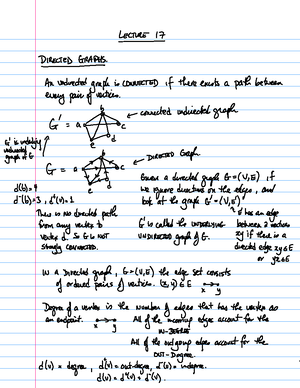 LECTURE 17
DIRECTED GRAPHS.
An undirected graph is CONNECTED if there exists a path between
every pair of vertices.
b
G' = a c connected undirected graph
e d
G' is underlying
undirected
graph of G
b
G = a c DIRECTED Graph
e d
Given a directed graph G=(V,E) if
we ignore directions on the edges, and
look at the graph G'=(V,E')
d(b)=4
d⁻(b)=3, d⁺(b)=1
There is no directed path
from any vertex to
vertex d. So G is not
STRONGLY CONNECTED.
G' is called the UNDERLYING
UNDIRECTED graph of G.
E' has an edge
between 2 vertices
xy if there is a
directed edge xy ∈ E
or yx ∈ E
IN A Directed graph, G=(V,E) the edge set consists
of ordered pairs of vertices. (x,y) ∈ E
x y
Degree of a vertex is the number of edges that has the vertex as
an endpoint.
x y
All of the incoming edges account for the
IN-DEGREE
All of the outgoing edges account for the
OUT-Degree.
d(v) = degree, d⁺(v) = out-degree, d⁻(v) = indegree.
d(v) = d⁺(v) + d⁻(v).